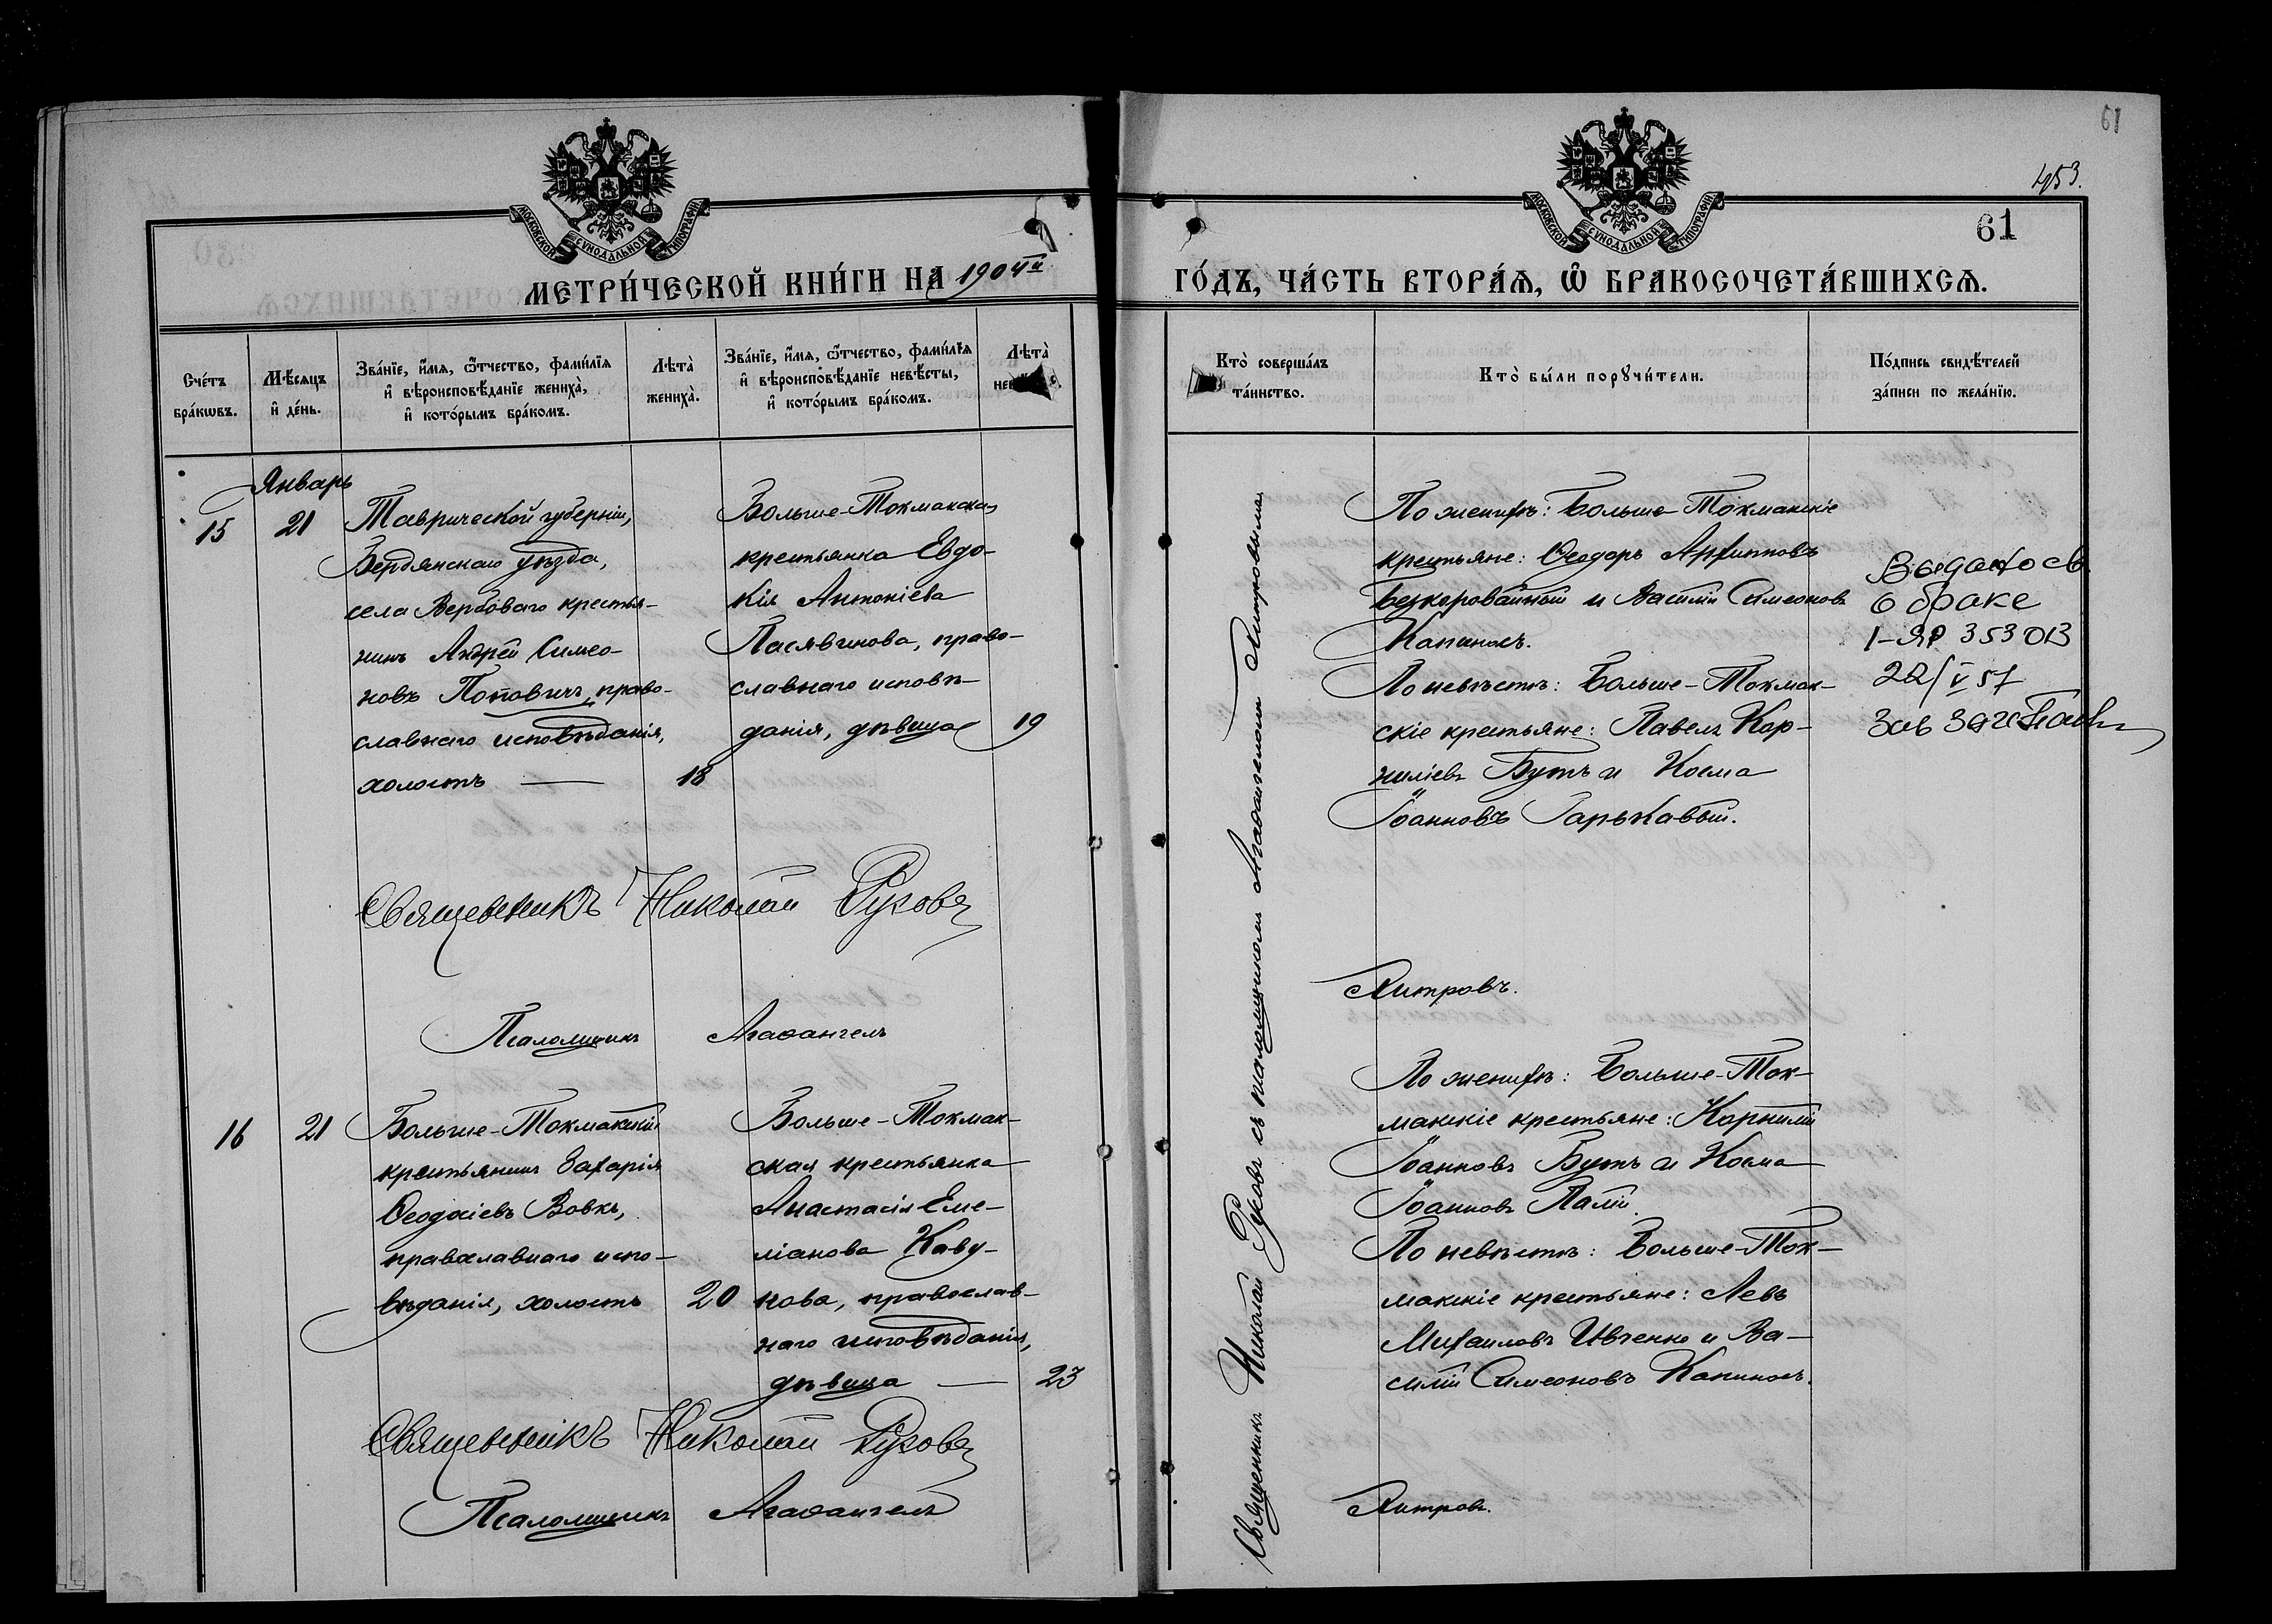 МОСКОВСКОЙ СУНОДАЛЬНОЙ ТИПОГРАФИИ
МЕТРИ́ЧЕСКОЙ КНИ́ГИ НА 1904й
Сче́тъ бра́кѡвъ.
Мѣ́сяцъ и҆ де́нь.
Зва́нїе, и҆́мя, ѻ҆́тчество, фами́лїя
и҆ вѣроисповѣ́данїе жениха̀,
и҆ кото́рымъ бра́комъ.
Лѣта̀ жениха̀.
Зва́нїе, и҆́мя, ѻ҆́тчество, фами́лїя
и҆ вѣроисповѣ́данїе невѣ́сты,
и҆ кото́рымъ бра́комъ.
Лѣта̀
Январь
15 21
Таврической губерніи,
Бердянскаго уѣзда,
села Вербоваго крестья-
нинъ Андрей Симео-
новъ Поповичъ, право-
славнаго исповѣданія,
холостъ — 18
Больше-Токмакская
крестьянка Евдо-
кія Антоніева
Пасявинова, право-
славнаго исповѣ-
данія, дѣвица 19
Священникъ Николай Руховъ
Псаломщикъ Агаѳангелъ
16 21
Больше-Токмакскій
крестьянинъ Захарія
Ѳеодосіевъ Вовкъ,
православнаго испо-
вѣданія, холостъ 20
Больше-Токмак-
ская крестьянка
Анастасія Еме-
ліанова Каву-
нова, православ-
наго исповѣданія,
дѣвица — 23
Священникъ Николай Руховъ
Псаломщикъ Агаѳангелъ
61
453.
МОСКОВСКОЙ СУНОДАЛЬНОЙ ТИПОГРАФИИ
61
ГО́ДЪ, ЧА́СТЬ ВТОРА́Я, Ѡ҆ БРАКОСОЧЕТА́ВШИХСЯ.
Кто̀ соверша́лъ
та́инство.
Кто̀ бы́ли порꙋчи́тели.
По́дпись свидѣ́телей
за́писи по жела́нїю.
Священникъ Николай Руховъ съ псаломщикомъ Агаѳангеломъ Хитровымъ
По женихѣ: Больше-Токмакскіе
крестьяне: Ѳеодоръ Архипповъ
Безкоровайный и Василій Симеоновъ
Капиносъ.
По невѣстѣ: Больше-Токмак-
скіе крестьяне: Павелъ Кор-
ниліевъ Бутъ и Косма
Іоанновъ Гарькавый.
Хитровъ.
Выдано св.
о браке
1-ЯР 353013
22/V 57
Зав Загс
По женихѣ: Больше-Ток-
макскіе крестьяне: Корнилій
Іоанновъ Бутъ и Косма
Іоанновъ Палій.
По невѣстѣ: Больше-Ток-
макскіе крестьяне: Левъ
Михаиловъ Ивченко и Ва-
силій Симеоновъ Капиносъ.
Хитровъ.